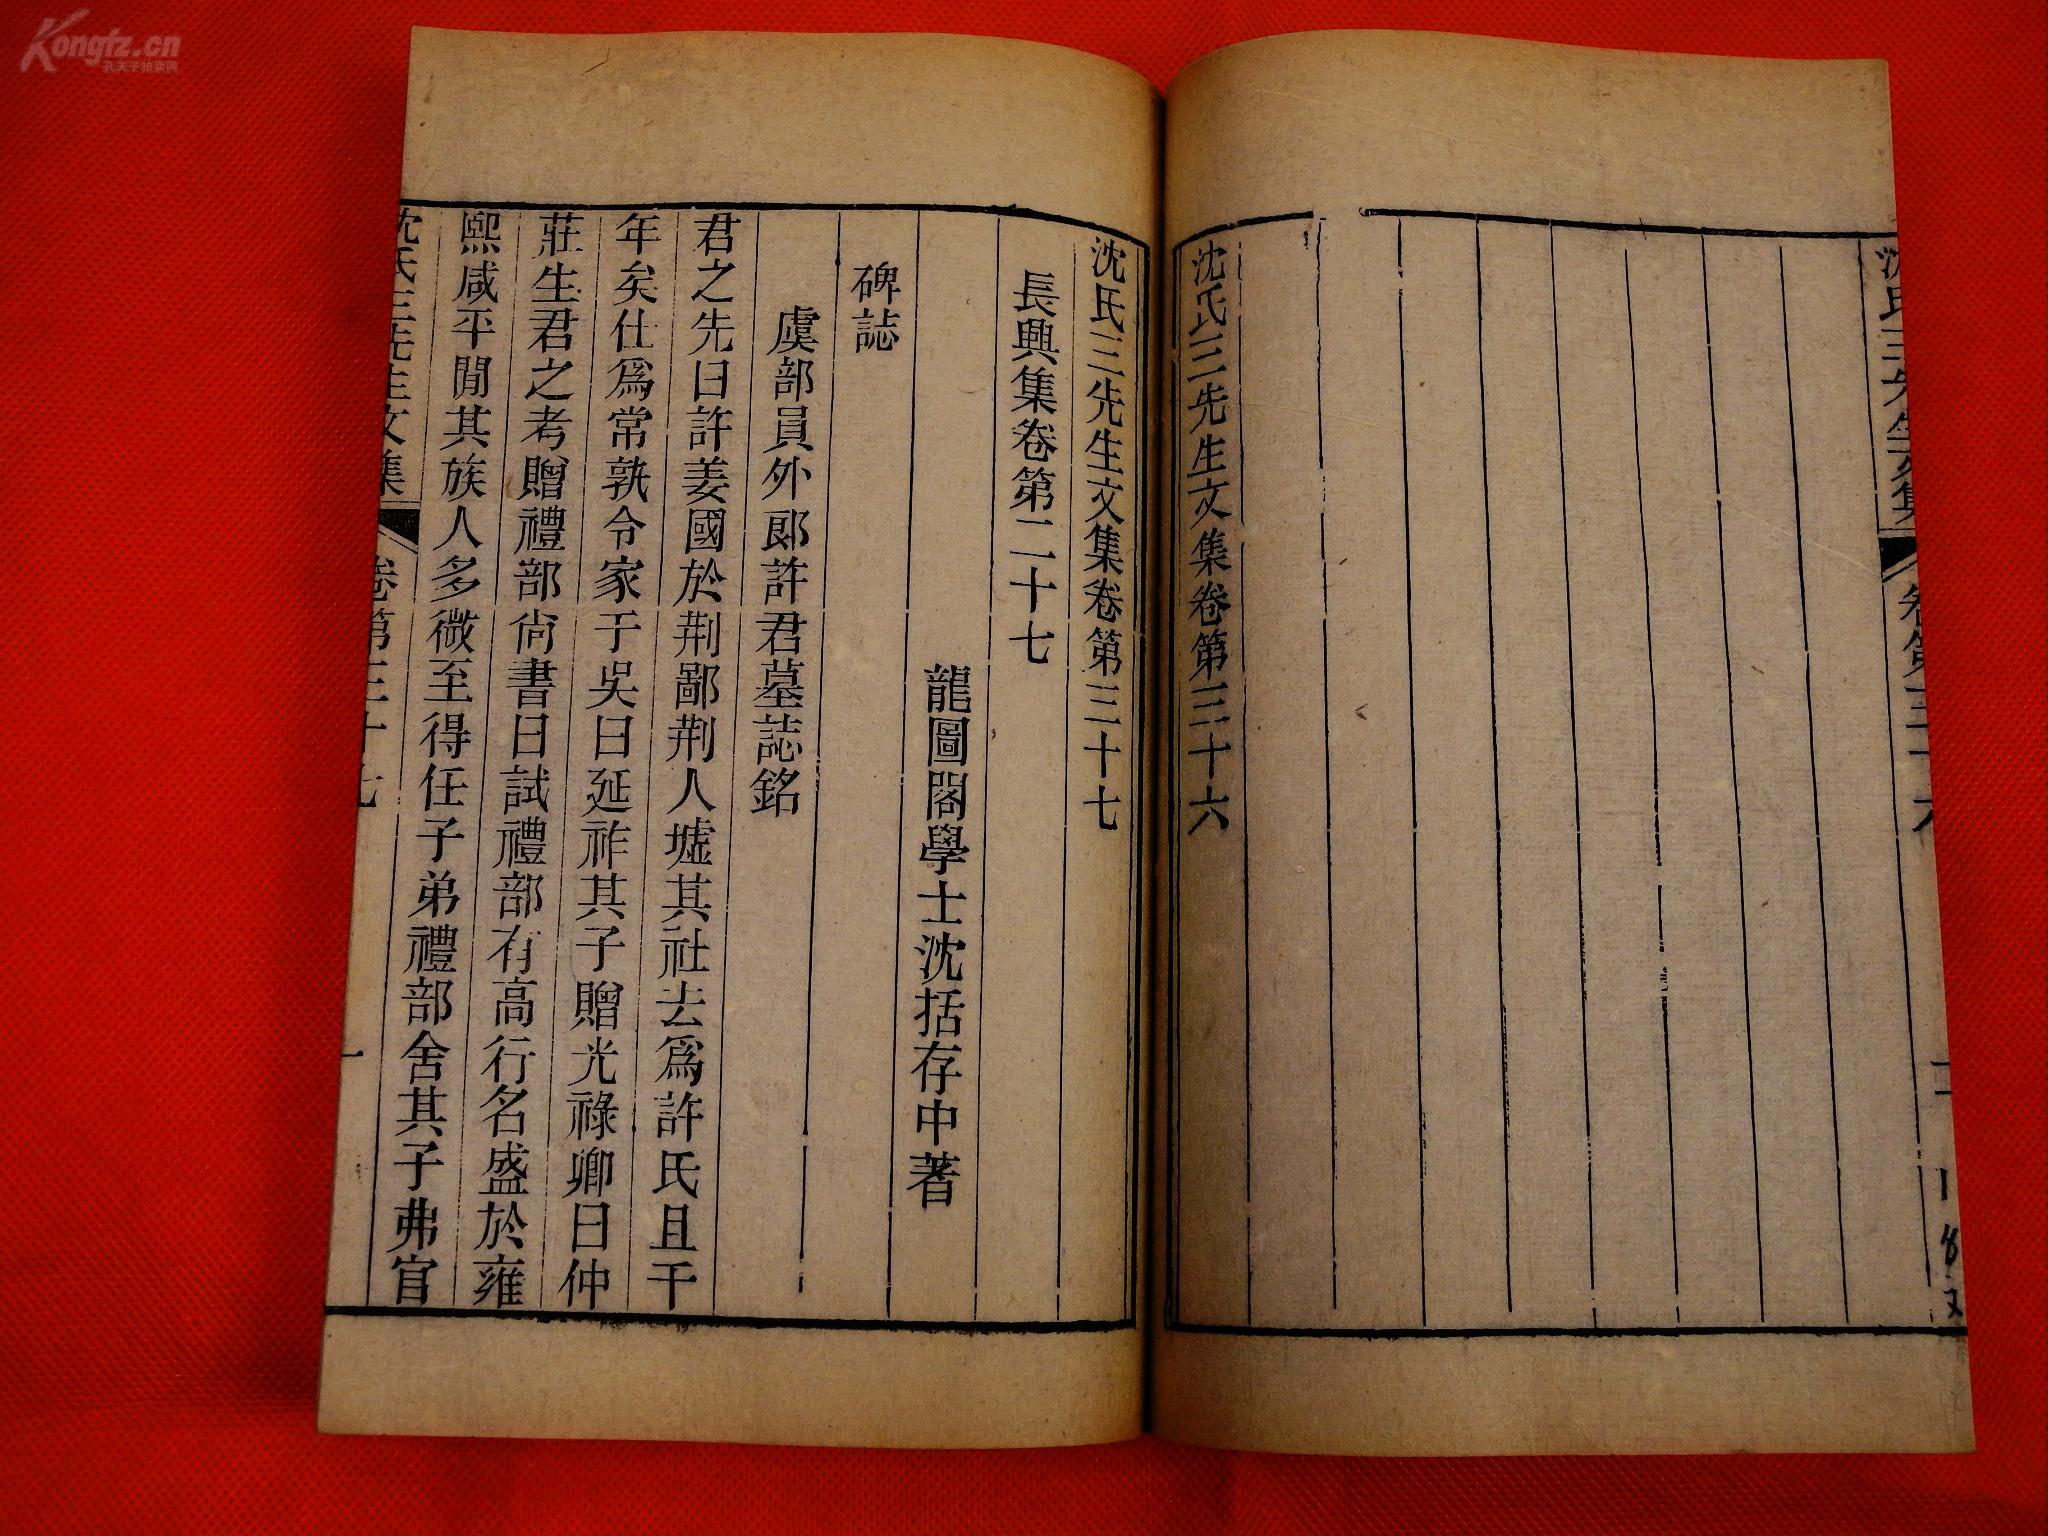 Kongfz.cn
孔夫子拍卖网
沈氏三先生文集
卷第三十六
沈氏三先生文集卷第三十六
沈氏三先生文集卷第三十七
長興集卷第二十七
龍圖閣學士沈括存中著
碑誌
虞部員外郎許君墓誌銘
君之先曰許姜國於荆鄙荆人墟其社去爲許氏且千
年矣仕爲常孰令家于吳曰延祚其子贈光祿卿曰仲
莊生君之考贈禮部尙書曰試禮部有高行名盛於雍
熙咸平閒其族人多微至得任子弟禮部舍其子弗官
沈氏三先生文集
卷第三十七
一